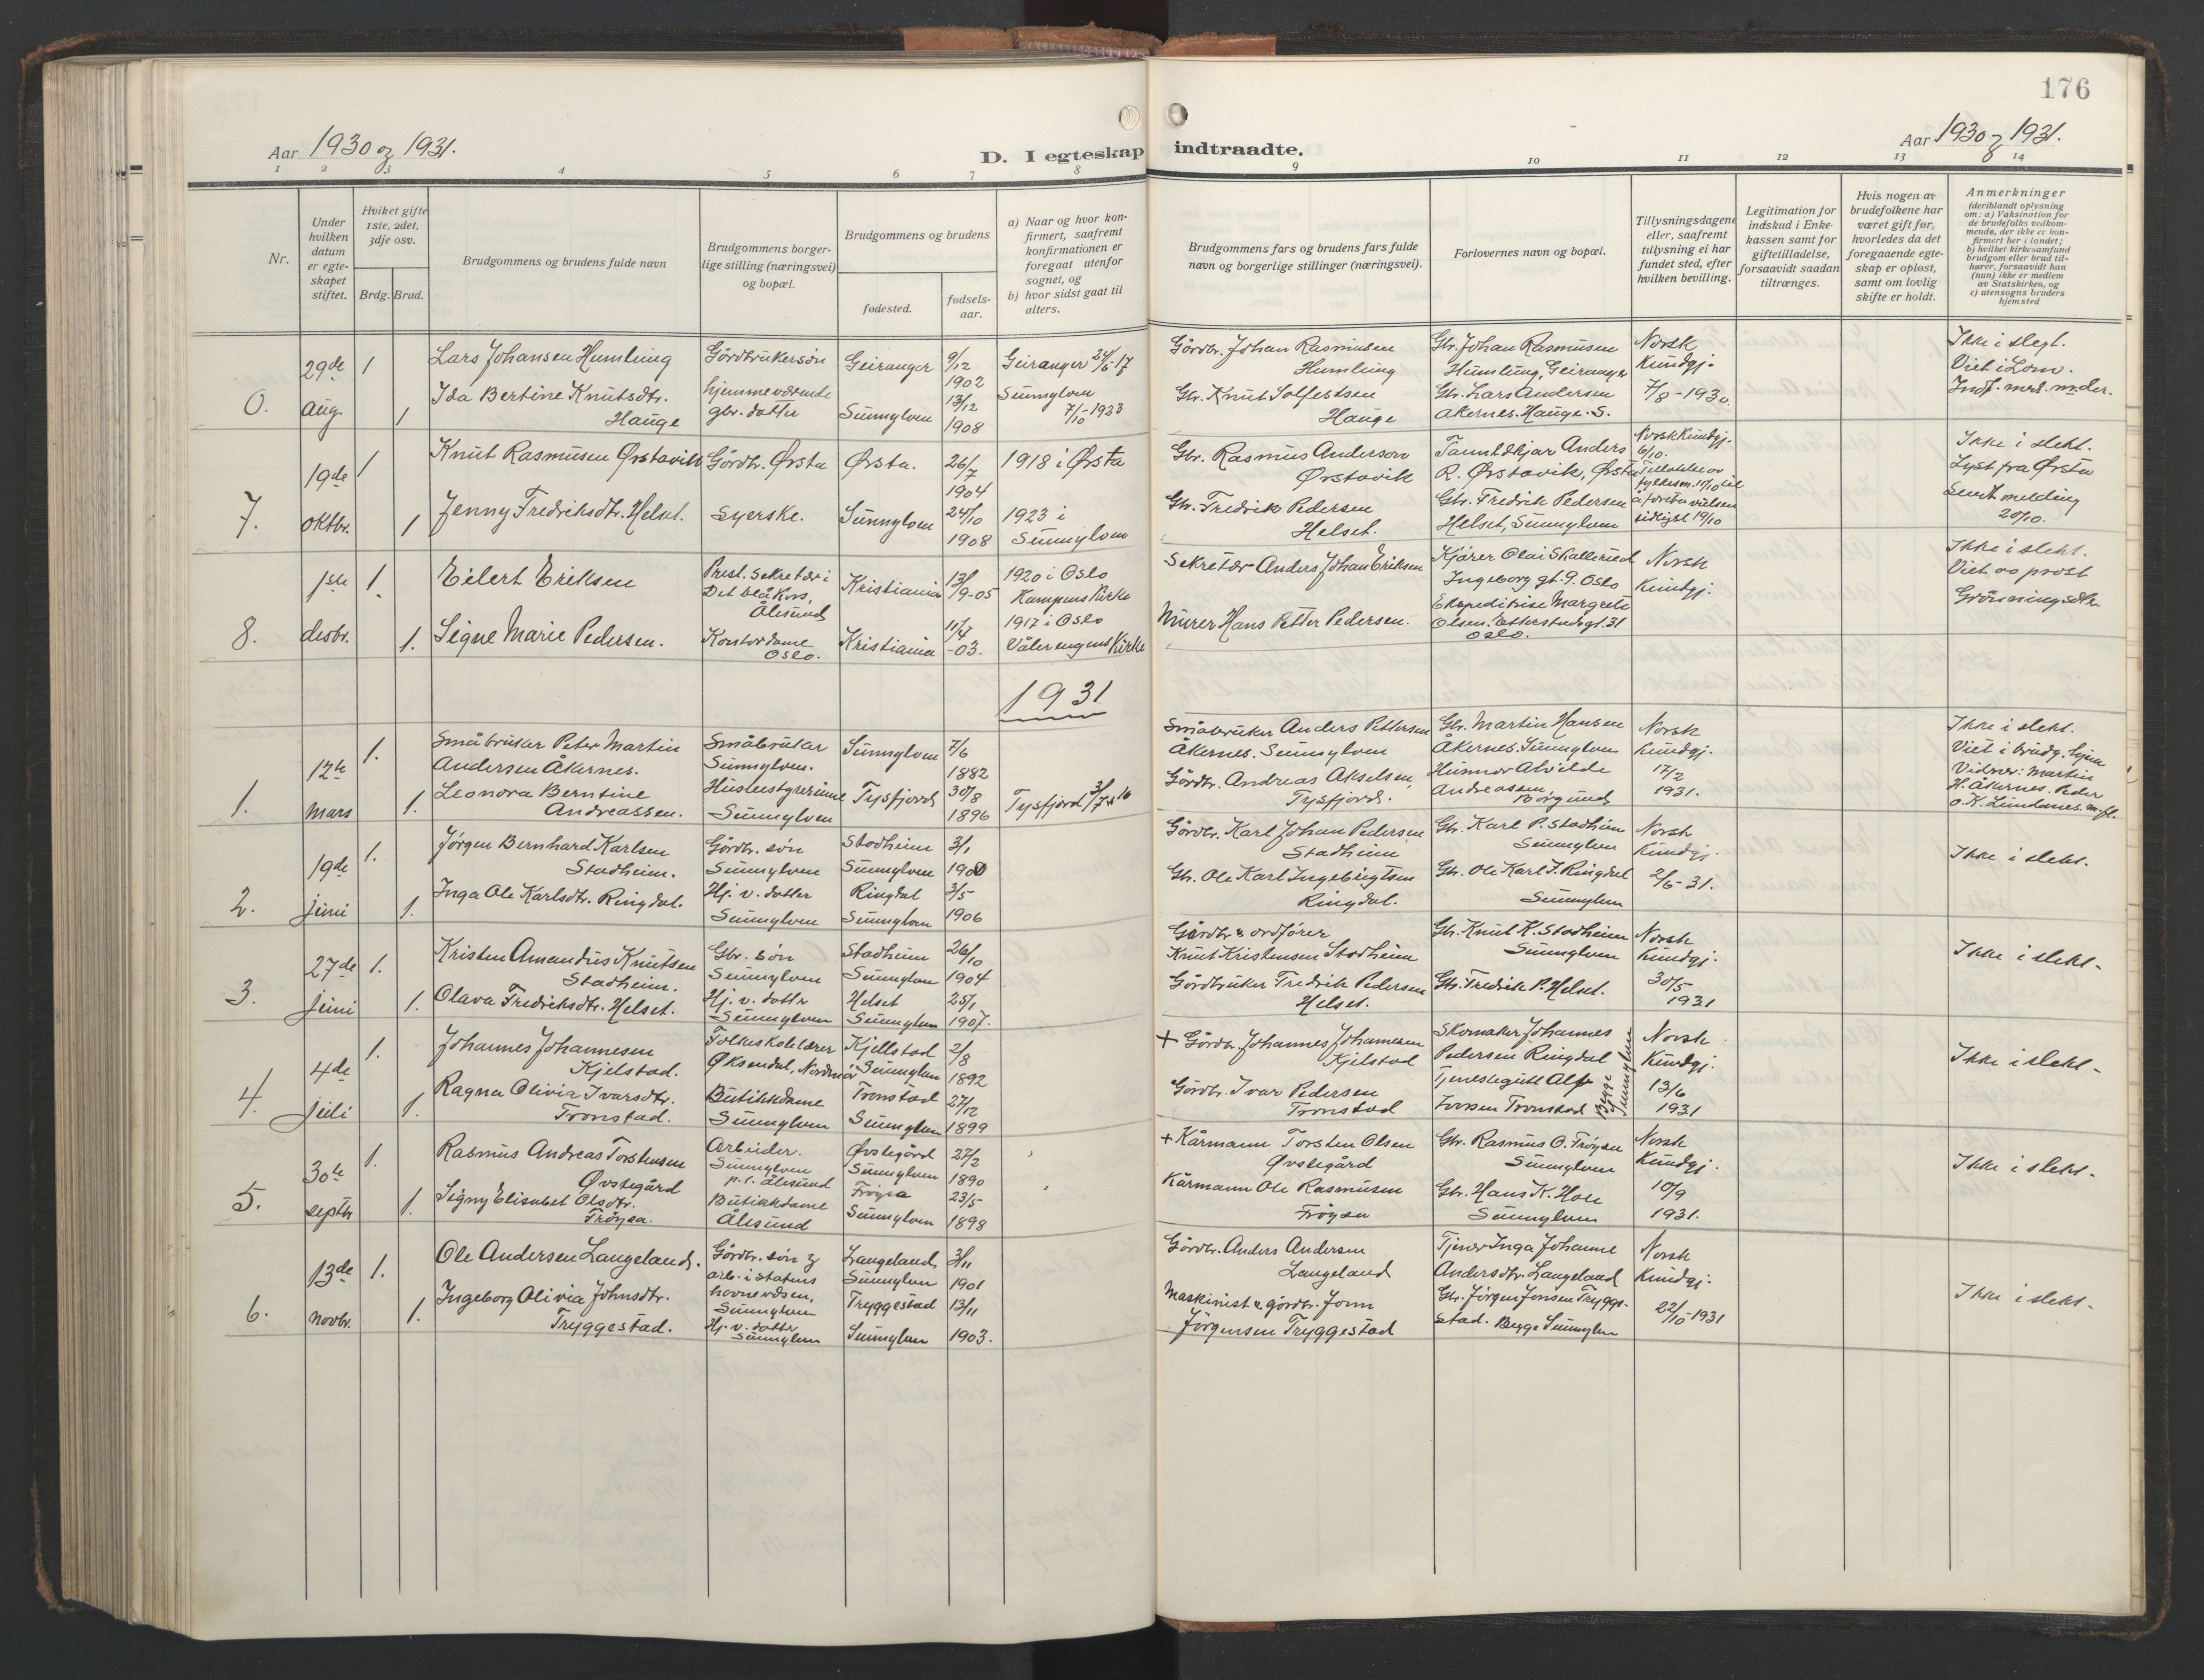 176
Aar 1930 og 1931.
D. I egteskap indtraadte.
Aar 1930 og 1931.
1 2 3 4 5 6 7 8 9 10 11 12 13 14
Nr.
Under hvilken datum er egteskapet stiftet.
Hvilket gifte 1ste, 2det, 3dje osv.
Brdg. Brud.
Brudgommens og brudens fulde navn
Brudgommens borgerlige stilling (næringsvei) og bopæl.
Brudgommens og brudens
fødested.
fødselsaar.
a) Naar og hvor konfirmert, saafremt konfirmationen er foregaat utenfor sognet, og
b) hvor sidst gaat til alters.
Brudgommens fars og brudens fars fulde navn og borgerlige stillinger (næringsvei).
Forlovernes navn og bopæl.
Tillysningsdagene eller, saafremt tillysning ei har fundet sted, efter hvilken bevilling.
Legitimation for indskud i Enkekassen samt for giftetilladelse, forsaavidt saadan tiltrænges.
Hvis nogen av brudefolkene har været gift før, hvorledes da det foregaaende egteskap er opløst, samt om lovlig skifte er holdt.
Anmerkninger
(deriblandt oplysning om: a) Vaksination for de brudefolks vedkommende, der ikke er konfirmert her i landet; b) hvilket kirkesamfund brudgom eller brud tilhører, forsaavidt han (hun) ikke er medlem av Statskirken, og c) utensogns bruders hjemsted
29de aug. 1
Lars Johansen Humlung
Gårdbrukersøn
Geiranger
9/12 1902
Geiranger 24/6-17
Gårdbr. Johan Rasmussen Humlung
Gbr. Johan Rasmussen Humlung, Geiranger
Norsk Kundgj. 7/8-1930
Ikke i slegt.
Viet i Lom.
1
Ida Bertine Knutsdtr. Hauge
hjemmeværende gbr. datter
Sunnylven
13/12 1908
Sunnylven 7/10-1923
Gbr. Knut Solfestsen Hauge
Gbr. Lars Andersen Åkernes. Hauge. S.
7. 19de oktbr. 1
Knut Rasmusen Ørstavik
Gårdbr. Ørsta
Ørsta.
26/7 1904
1918 i Ørsta
Gbr. Rasmus Anderson Ørstavik
Anders R. Ørstavik, Ørsta
Norsk Kundgj. 6/10.
Ikke i slekt.
Lyst fra Ørsta
Sendt melding 20/10.
1
Jenny Fredriksdtr. Helset.
Syerske.
Sunnylven
24/10 1908
1923 i Sunnylven
Gbr. Fredrik Pedersen Helset.
Gbr. Fredrik Pedersen Helset, Sunnylven
sidligst 19/10
8. 1ste desbr. 1.
Eilert Eriksen
Prest. Sekretær i Det blå Kors, Ålesund
Kristiania
13/9-05
1920 i Oslo Kampens Kirke
Sekretær Anders Johan Eriksen
Kjører Olai Skallerud Ingeborg gt. 9. Oslo
Norsk Kundgj.
Ikke i slekt.
Viet av prost
1.
Signe Marie Pedersen.
Kontordame Oslo.
Kristiania
11/4 -03.
1917 i Oslo Vålerengens Kirke
Murer Hans Petter Pedersen.
Ekspeditrise Margrete Olsen. Etterstadsgt. 31 Oslo.
1931
1. 12te mars 1.
Småbruker Peter Martin Andersen Åkernes.
Småbruker Sunnylven.
Sunnylven
7/6 1882
Småbruker Anders Pettersen Åkernes. Sunnylven
Gbr. Martin Hansen Åkernes. Sunnylven
Norsk Kundgj. 17/2 1931.
Ikke i slekt.
Viet i brudg. hjem
Vidner: Martin H. Åkernes. Peder o. K. Lundanes. m. fl.
1.
Leonora Berntine Andreassen.
Husbestyrerinne Sunnylven
Tysfjord
30/8 1896
Tysfjord
Gårdbr. Andreas Akselsen, Tysfjord.
Alvilde Andreassen, Borgund
2. 19de juni 1.
Jørgen Bernhard Karlsen Stadheim.
Gårdbr. søn Sunnylven
Stadheim Sunnylven
3/1 1900
Gårdbr. Karl Johan Pedersen Stadheim
Gbr. Karl P. Stadheim Sunnylven
Norsk Kundgj. 2/6-31.
Ikke i slekt.
1.
Inga Ole Karlsdtr. Ringdal.
Hj. v. datter Sunnylven
Ringdal Sunnylven
3/5 1906
Gbr. Ole Karl Ingebrigtsen Ringdal.
Gbr. Ole Karl I. Ringdal Sunnylven
3. 27de juni 1.
Kristen Amandus Knutsen Stadheim.
Gbr. søn Sunnylven
Stadheim Sunnylven
26/10 1904
Gårdbr & ordfører Knut Kristensen Stadheim
Gbr. Knut K. Stadheim Sunnylven
Norsk Kundgj. 30/5 1931
Ikke i slekt.
1.
Olava Fredriksdtr. Helset.
Hj. v. datter Sunnylven
Helset Sunnylven
25/1 1907.
Gårdbruker Fredrik Pedersen Helset.
Gbr. Fredrik P. Helset.
4. 4de juli 1.
Johannes Johannesen Kjelstad.
Folkeskolelærer Øksendal, Nordmør
Kjellstad Sunnylven
2/8 1892
+ Gårdbr. Johannes Johannesen Kjelstad
Skomaker Johannes Pedersen Ringdal
Norsk Kundgj. 13/6 1931
Ikke i slekt.
1.
Ragna Olivia Ivarsdtr. Tronstad.
Butikkdame Sunnylven
Tronstad Sunnylven
27/12 1899
Gårdbr. Ivar Pedersen Tronstad
Tjenestegutt Alf Ivarsen Tronstad
Begge Sunnylven
5. 30te septbr 1.
Rasmus Andreas Torstensen Øvstegård
Arbeider. Sunnylven p.t. Ålesund
Øvstegård Sunnylven
27/2 1890
+ Kårmann Torsten Olsen Øvstegård
Gbr. Rasmus O. Frøysa Sunnylven
Norsk Kundgj. 10/9 1931.
Ikke i slekt.
1.
Signy Elisabet Olsdtr. Frøysa.
Butikkdame Ålesund
Frøysa Sunnylven
23/5 1898
Kårmann Ole Rasmusen Frøysa
Gbr. Hans K. Hole Sunnylven
6. 13de novbr. 1.
Ole Andersen Langeland.
Gårdbr. søn og arb. i statens havnevesen, Sunnylven
Langeland, Sunnylven
3/11 1901
Gårdbr. Anders Andersen Langeland
Tjener Inga Johanne Andersdtr. Langeland
Norsk Kundgj. 22/10-1931
Ikke i slekt.
1.
Ingeborg Olivia Johnsdtr. Tryggestad.
Hj. v. datter Sunnylven
Tryggestad Sunnylven
13/11 1903.
Maskinist & gårdbr. Jonn Jörgensen Tryggestad
Gbr. Jörgen Jonsen Tryggestad. Begge Sunnylven